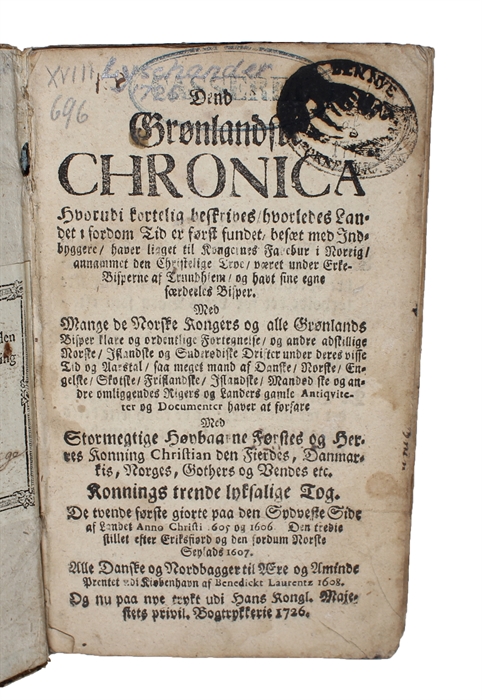 XVIII
Lyschander
1726
696
DEN NYE
Dend
Grønlandske
CHRONICA
Hvorudi kortelig beskrives/hvorledes Lan-
det i fordom Tid er først fundet/ besæt med Ind-
byggere/ haver ligget til Kongernes Fadebur i Norrig/
annammet den Christelige Troe/ været under Erke-
Bisperne af Trundhiem/ og havt sine egne
særdeeles Bisper.
Med
Mange de Norske Kongers og alle Grønlands
Bisper klare og ordentlige Fortegnelse/ og andre adskillige
Norske/ Islandske og Suderødiske Drifter under deres visse
Tid og Aarstal/ saa meget mand af Danske/ Norske/ En-
gelske/ Skotske/ Frislandske/ Islandske/ og an-
dre omliggendes Rigers og Landers gamle Antiqvite-
ter og Documenter haver at forfare
Med
Stormegtige Høybaarne Førstes og Her-
res Konning Christian den Fierdes, Danmar-
kis, Norges, Gothers og Vendes etc.
Konnings trende lyksalige Tog.
De tvende første giorte paa den Sydveste Side
af Landet Anno Christi 1605 og 1606. Den tredie
stillet efter Eriksfiord og den fordum Norske
Seylads 1607.
Alle Danske og Nordbagger til Ære og Aminde
Prentet udi Kiøbenhavn af Benedickt Laurentz 1608.
Og nu paa nye trykt udi Hans Kongl. Maje-
stets privil. Bogtrykkerie 1726.